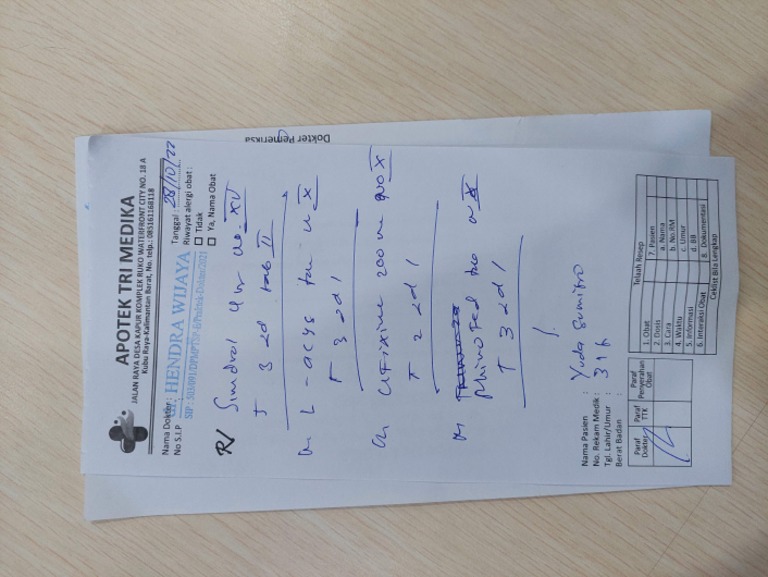 APOTEK TRI MEDIKA
JALAN RAYA DESA KAPUR KOMPLEK RUKO WATERFRONT CITY NO. 18 A
Kubu Raya-Kalimantan Barat, No. telp.: 085161168118
Nama Dokter : HENDRA WIJAYA
No S.I.P
SIP : 503/091/DPMPTSP-
Tanggal : 28/10/22
Riwayat alergi obat :
Tidak
Ya, Nama Obat
R/ XV
3 dd tab II
L-acys X
3 dd 1
Cefixime 200 X
2 dd 1
Rhinofed X
3 dd 1
Nama Pasien : Yuda Sumitro
No. Rekam Medik : 316
Tgl. Lahir/Umur :
Berat Badan :
Paraf Dokter
Paraf TTK
Paraf Penyerahan Obat
Telaah Resep
1. Obat
2. Dosis
3. Cara
4. Waktu
5. Informasi
6. Interaksi Obat
7. Pasien
a. Nama
b. No.RM
c. Umur
d. BB
8. Dokumentasi
Ceklist Bila Lengkap
Dokter Pemeriksa